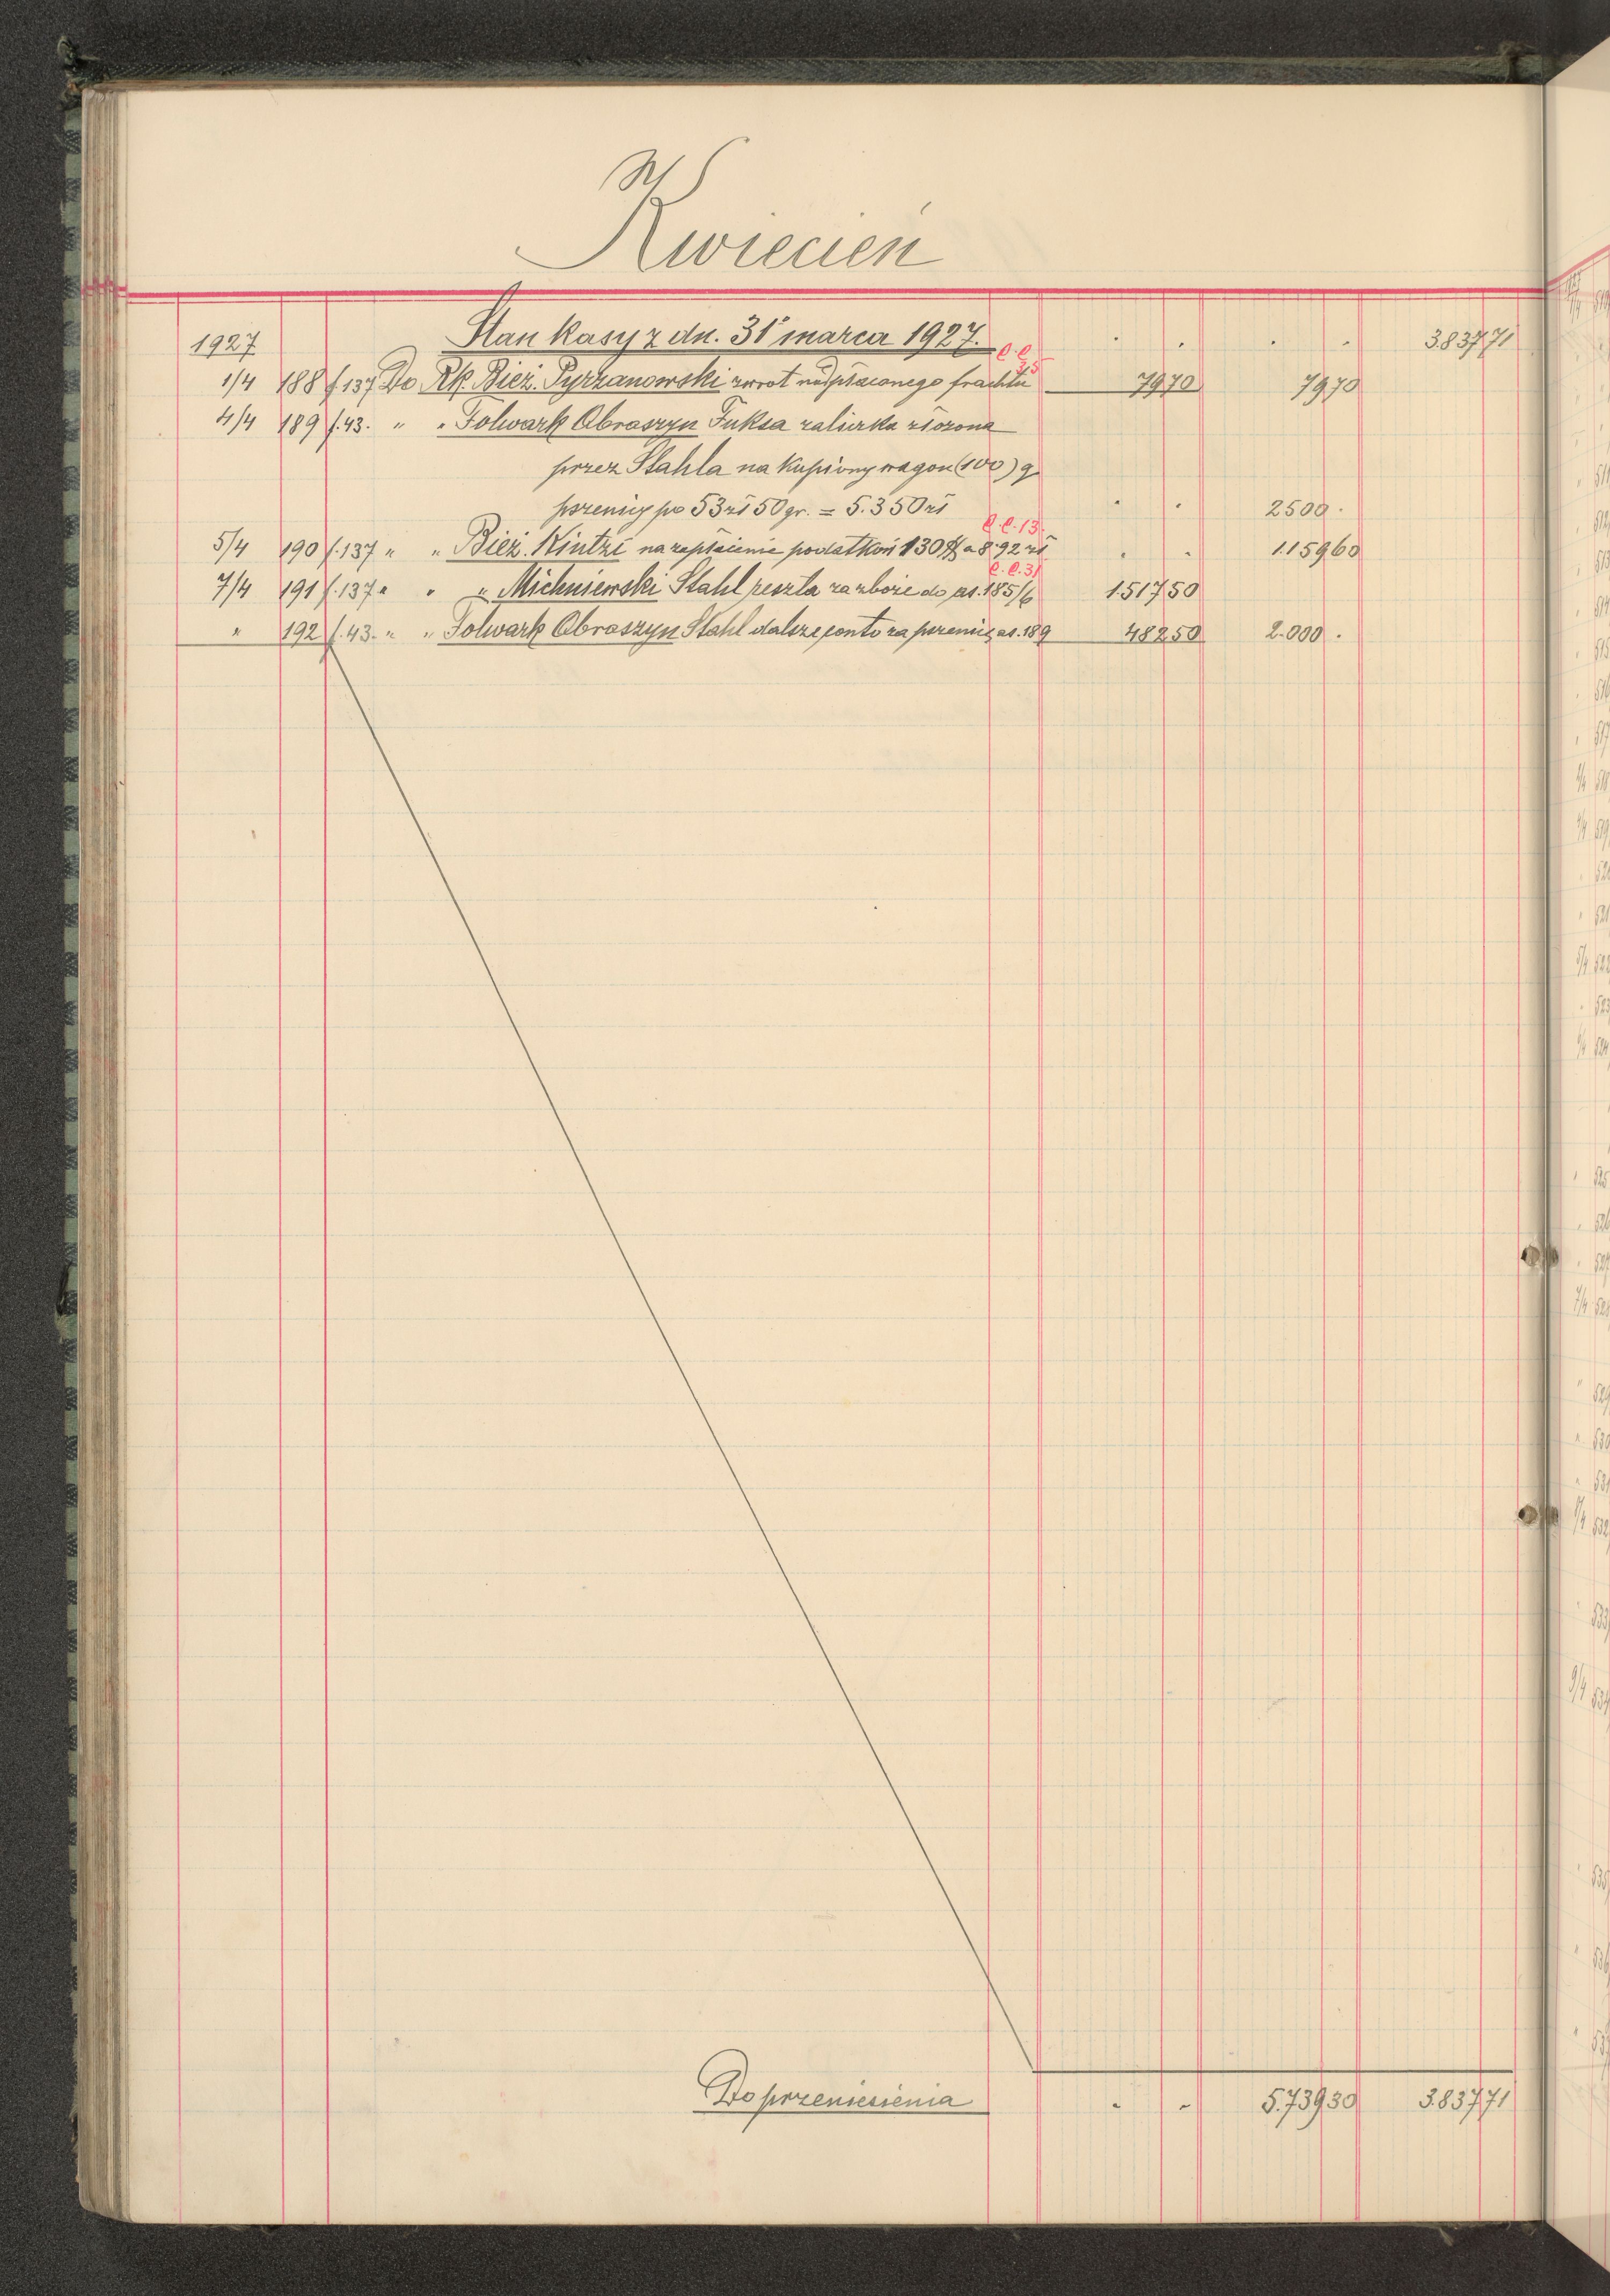 W
Kwiecień
1927 Stan kasy z dn. 31 marca 1927. . . . . 3.837 71
C.C.
35
1/4 188 f.137 Do Rk. Bież. Pyrżanowski zwrot nadpłaconego frachtu 79 70 79 70
4/4 189 f.43. " " Folwark Obroszyn Fuksa zaliczka złożona
przez Stahla na kupiony wagon (100) q
pszenicy po 53 zł 50 gr. = 5.350 zł . . 2500 .
C.C. 13.
5/4 190 f.137 " " Bież. Kintzi na zapłacenie podatków 130 $ a 8.92 zł . . 1.159 60
C.C. 31
7/4 191 f.137 " " " Michniewski Stahl reszta za zboże do as. 185/6 1.517 50
" 192 f.43. " " Folwark Obroszyn Stahl dalsze conto za pszenicę as. 189 482 50 2.000 .
Do przeniesienia - - 5.739 30 3.837 71